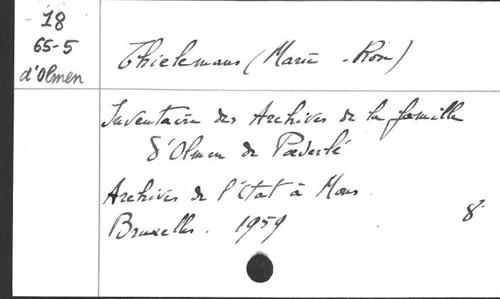 18
65-5
d'Olmen
Thielemans (Marie-Rose)
Inventaire des Archives de la famille
d'Olmen de Poederlé
Archives de l'État à Mons.
Bruxelles. 1959
8°